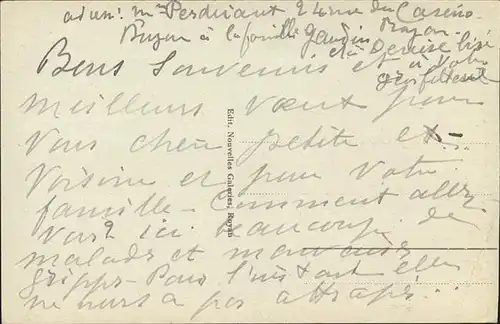 adres: Mme Perdriant 24 rue du Casino
Royan
à la famille Gaudin
et à Denise
et à votre
Bons Souvenirs et
meilleurs vœux pour
vous chère petite et
voisine et pour votre
famille - Comment allez
vous? ici beaucoup de
malades et mauvaise
grippe - Pour l'instant elle
ne nous a pas attrapé...
Edit. Nouvelles Galeries, Royan